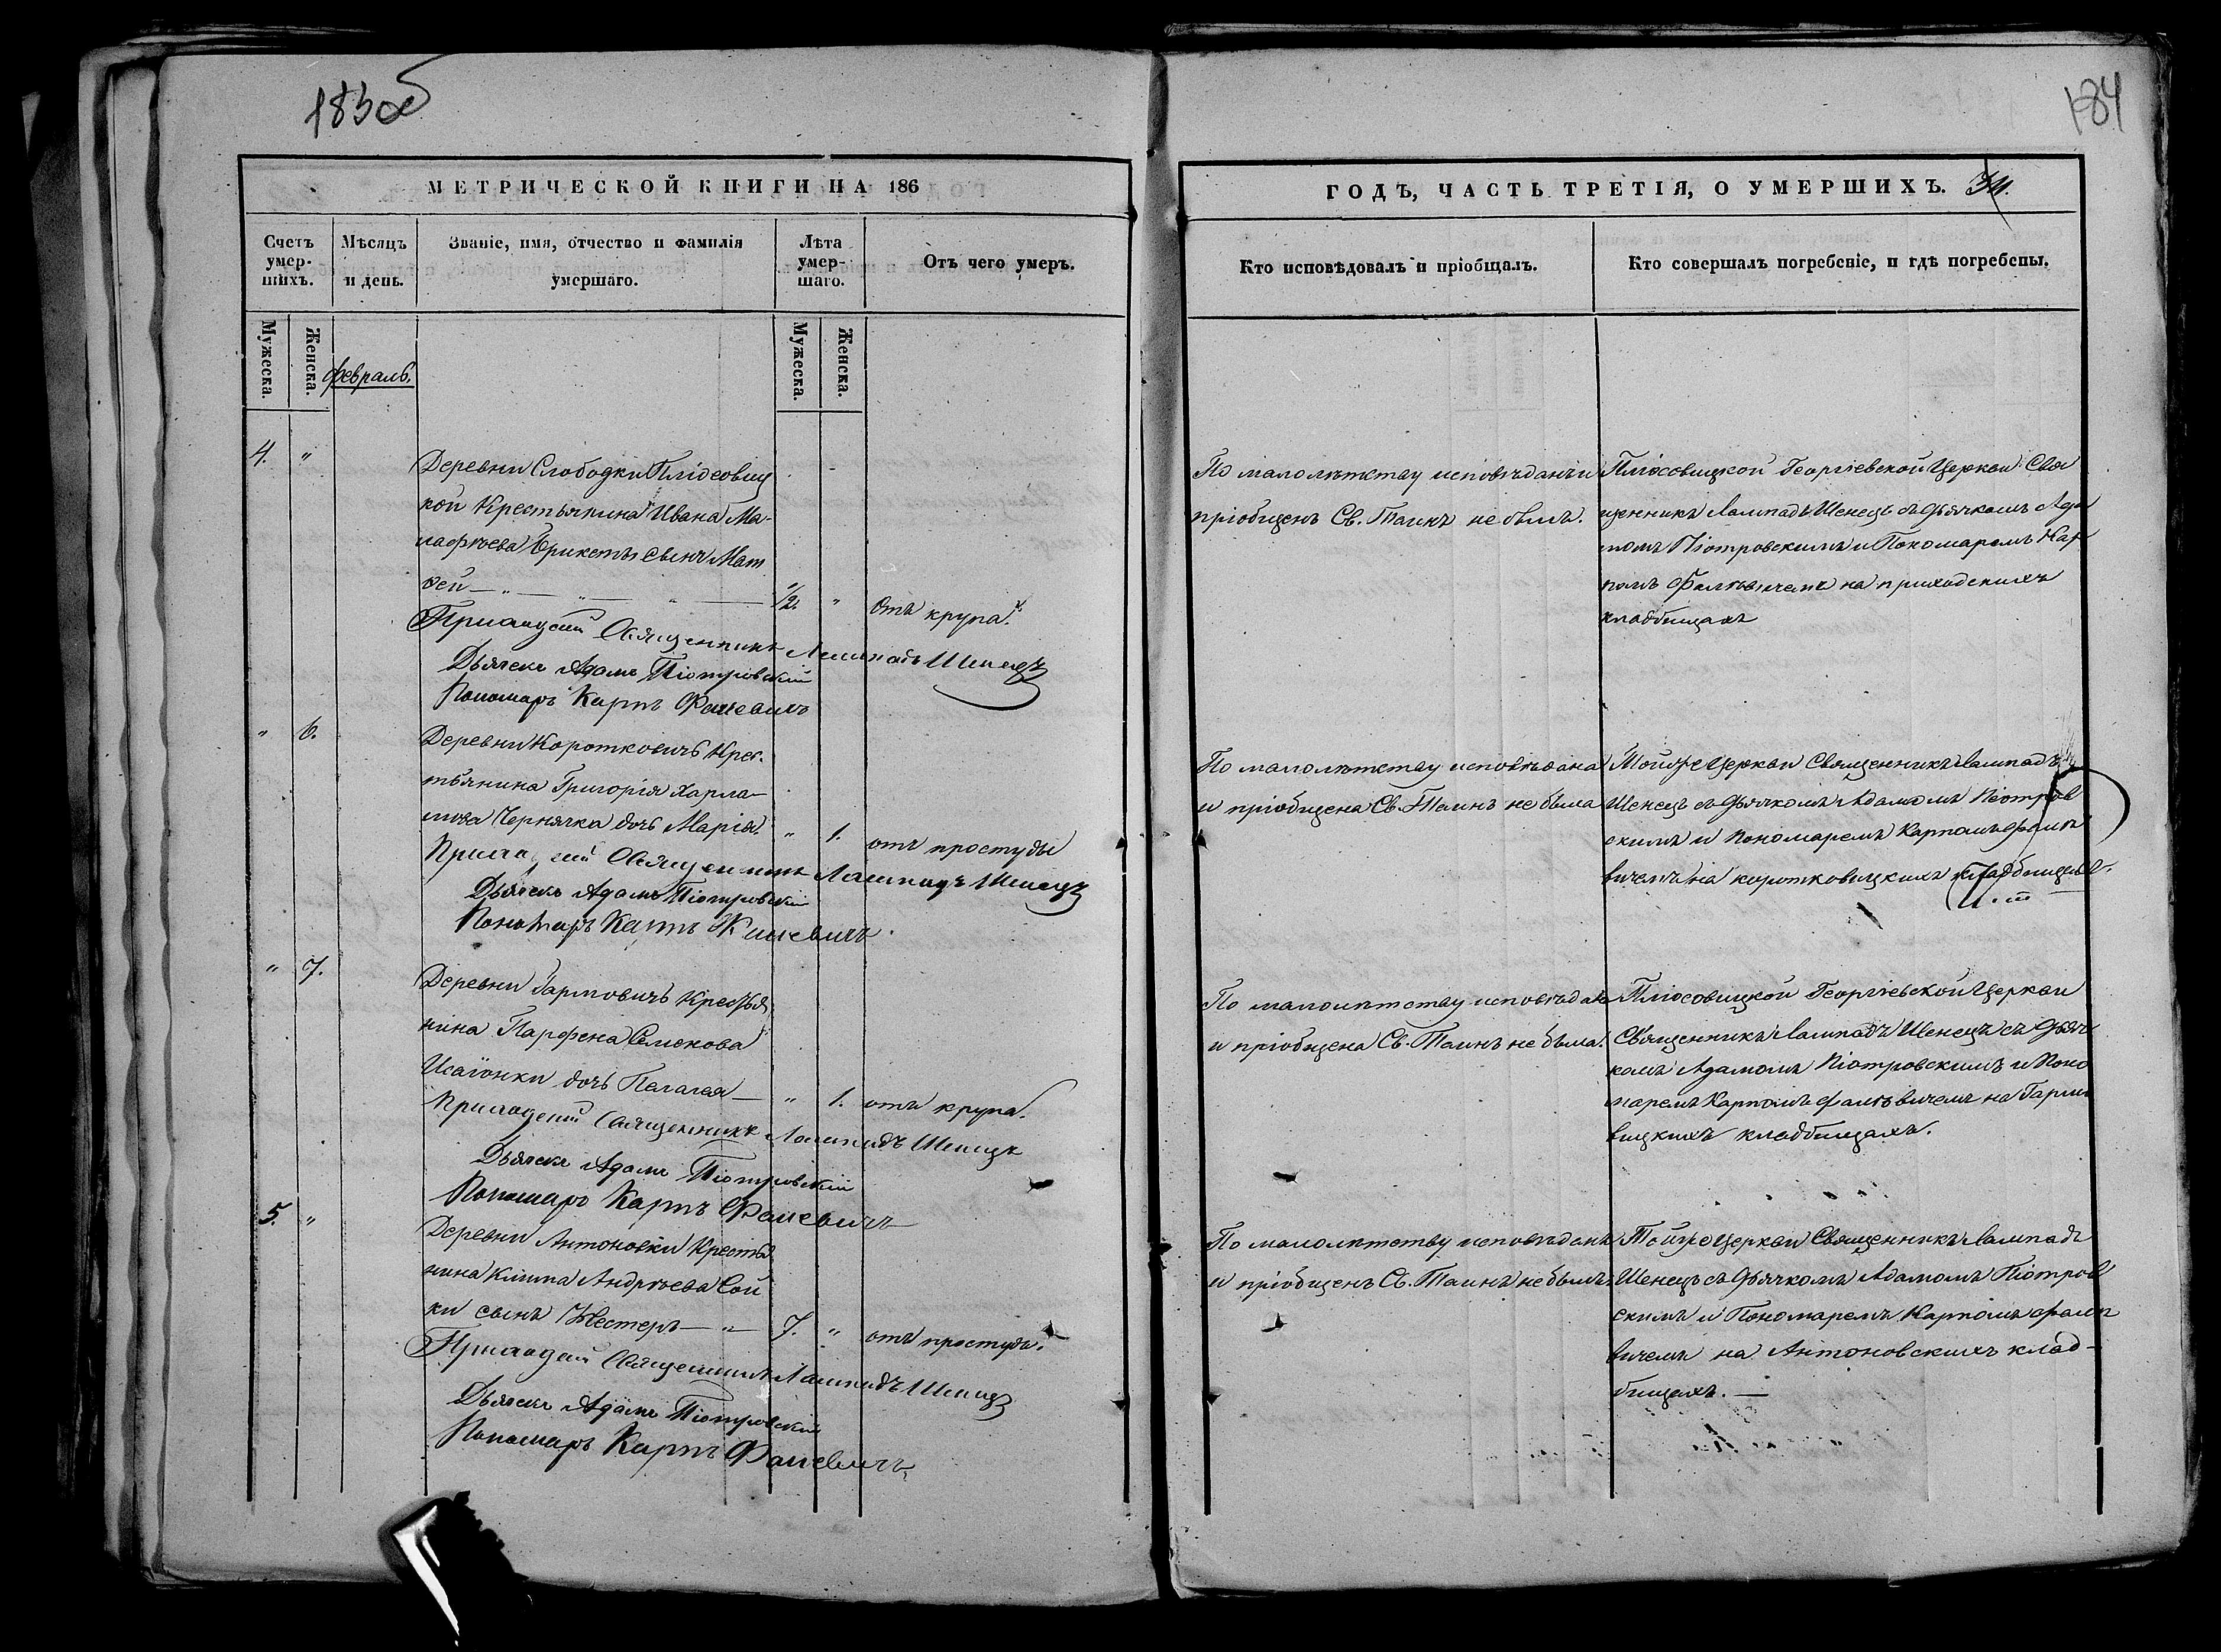 183об
184
МЕТРИЧЕСКОЙ КНИГИ НА 186
ГОДЪ, ЧАСТЬ ТРЕТІЯ, О УМЕРШИХЪ. 34.
Счетъ умер-шихъ.
Мѣсяцъ и день.
Званіе, имя, отчество и фамилія умершаго.
Лѣта умер-шаго.
Отъ чего умеръ.
Кто исповѣдовалъ и пріобщалъ.
Кто совершалъ погребеніе, и гдѣ погребены.
Мужеска.
Женска.
Февраль.
Мужеска.
Женска.
4. "
Деревни Слободки Плюсовиц
кой Крестьянина Ивана Ма-
сынъ Мат
фей — " — " — " — 1/2. " Отъ крупа.
Приходскій Священникъ Лампадъ Шенецъ
Дьячекъ Адамъ Піотровскій
Пономарь Карпъ Фалевичъ
По малолѣтству исповѣданъ и
пріобщенъ Св. Таинъ не былъ.
Плюсовицкой Георгіевской Церкви Свя
щенникъ Лампадъ Шенецъ съ дьячкомъ Ада
момъ Піотровскимъ и Пономаремъ Кар
помъ Фалевичемъ на приходскихъ
кладбищахъ
" 6.
Деревни Короткович Крес-
тьянина Григорія Харла-
мова Чернячка дочь Марія. " 1. отъ простуды
Приходскій Священникъ Лампадъ Шенецъ
Дьячекъ Адамъ Піотровскій
Пономарь Карпъ Фалевичъ.
По малолѣтству исповѣдана
и пріобщена Св. Таинъ не была
Тойже Церкви Священникъ Лампадъ
Шенецъ съ дьячкомъ Адамомъ Піотров
скимъ и Пономаремъ Карпомъ Фале
вичемъ на коротковицкихъ кладбищахъ.
" 7.
Деревни Гарповичъ Крестья
нина Парфена Семенова
дочь Пелагея — " 1. отъ крупа.
Приходскій Священникъ Лампадъ Шенецъ
Дьячекъ Адамъ Піотровскій
Пономарь Карпъ Фалевичъ
По малолѣтству исповѣдана
и пріобщена Св. Таинъ не была.
Плюсовицкой Георгіевской Церкви
Священникъ Лампадъ Шенецъ съ дьяч
комъ Адамомъ Піотровскимъ и Поно
маремъ Карпомъ Фалевичемъ на Гарпо
вицкихъ кладбищахъ.
5. "
Деревни Антоновки Крестья
нина Клима Андреева Сой
ки сынъ Нестеръ — " — 7. " отъ простуды.
Приходскій Священникъ Лампадъ Шенецъ
Дьячекъ Адамъ Піотровскій
Пономарь Карпъ Фалевичъ
По малолѣтству исповѣданъ
и пріобщенъ Св. Таинъ не былъ
Тойже Церкви Священникъ Лампадъ
Шенецъ съ дьячкомъ Адамомъ Піотров
скимъ и Пономаремъ Карпомъ Фале
вичемъ на Антоновскихъ клад-
бищахъ. —